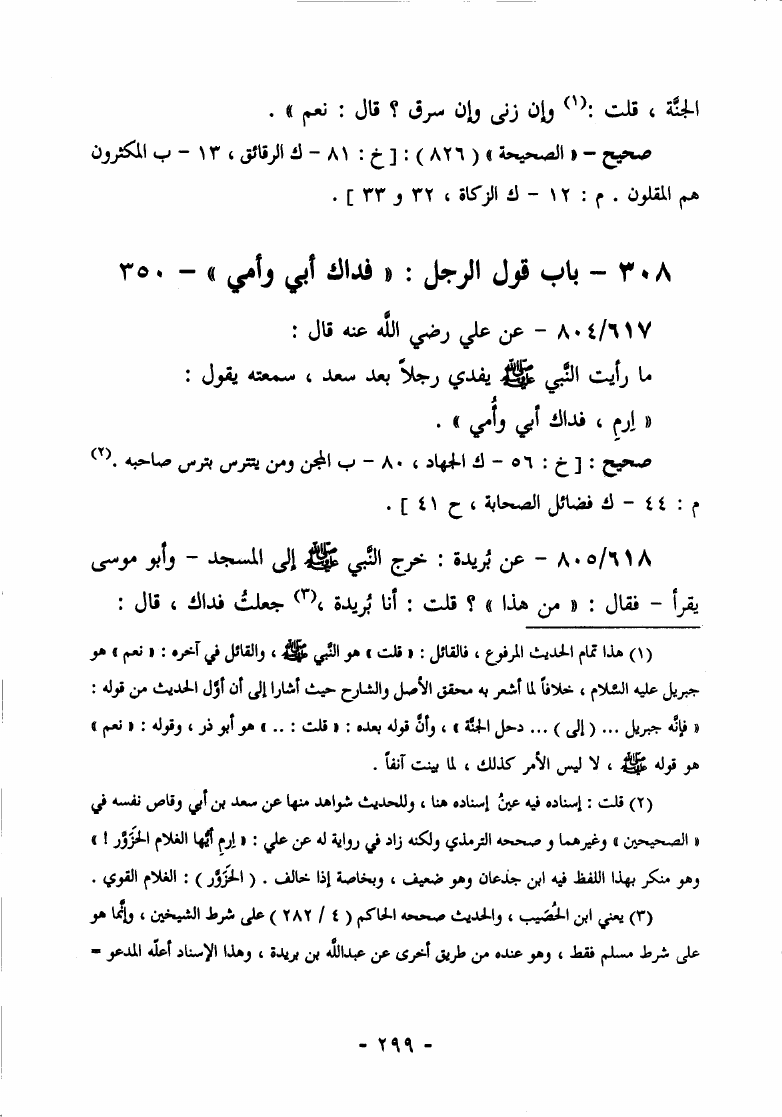 الجنَّة ، قلت :(١) وإن زنى وإن سرق ؟ قال : نعم » .
صحيح – « الصحيحة » ( ٨٢٦ ) : [ خ : ٨١ – ك الرقائق ، ١٣ – ب المكثرون
هم المقلون . م : ١٢ – ك الزكاة ، ٣٢ و ٣٣ ] .
٣٠٨ – باب قول الرجل : « فداك أبي وأمي » – ٣٥٠
٨٠٤/٦١٧ – عن علي رضي اللَّه عنه قال :
ما رأيت النَّبي ﷺ يفدي رجلاً بعد سعد ، سمعته يقول :
« اِرمِ ، فداك أبي وأُمي » .
صحيح : [ خ : ٥٦ – ك الجهاد ، ٨٠ – ب المجن ومن يتترس بترس صاحبه .(٢)
م : ٤٤ – ك فضائل الصحابة ، ح ٤١ ] .
٨٠٥/٦١٨ – عن بُريدة : خرج النَّبي ﷺ إلى المسجد – وأبو موسى
يقرأ – فقال : « من هذا » ؟ قلت : أنا بُريدة ،(٣) جعلتُ فداك ، قال :
(١) هذا تمام الحديث المرفوع ، فالقائل : « قلت » هو النَّبي ﷺ ، والقائل في آخره : « نعم » هو
جبريل عليه السَّلام ، خلافاً لما أشعر به محقق الأصل والشارح حيث أشارا إلى أن أوَّل الحديث من قوله :
« فإنَّه جبريل ... ( إلى ) ... دحل الجنَّة » ، وأنَّ قوله بعده : « قلت : .. » هو أبو ذر ، وقوله : « نعم »
هو قوله ﷺ ، لا ليس الأمر كذلك ، لما بينت آنفاً .
(٢) قلت : إسناده فيه عينُ إسناده هنا ، وللحديث شواهد منها عن سعد بن أبي وقاص نفسه في
« الصحيحين » وغيرهما و صححه الترمذي ولكنه زاد في رواية له عن علي : « اِرمِ أيُّها الغلام الحَزَوَّر ! »
وهو منكر بهذا اللفظ فيه ابن جدعان وهو ضعيف ، وبخاصة إذا خالف . ( الحَزَوَّر ) : الغلام القوي .
(٣) يعني ابن الحُصَيب ، والحديث صححه الحاكم ( ٤ / ٢٨٢ ) على شرط الشيخين ، وإنَّما هو
على شرط مسلم فقط ، وهو عنده من طريق أخرى عن عبداللَّه بن بريدة ، وهذا الإسناد أعلَّه المدعو =
- ٢٩٩ -